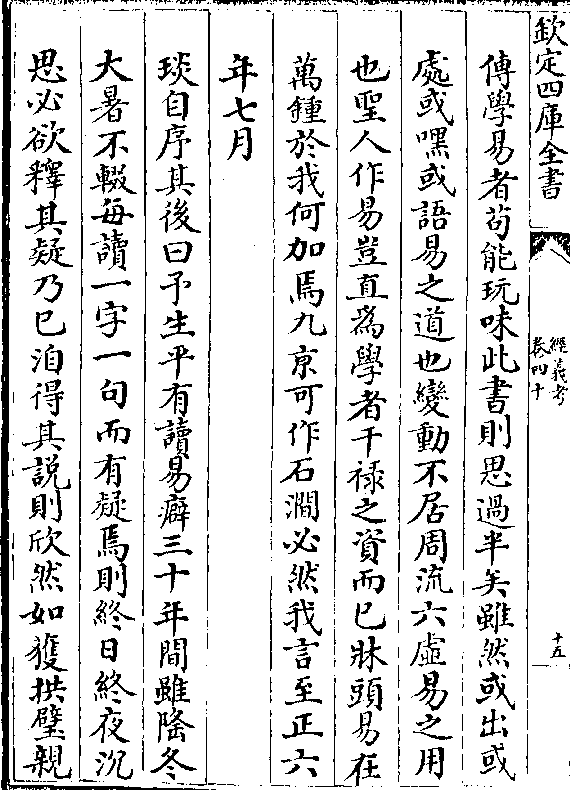 欽定四庫全書
經義考
卷四十
十五
傳學易者茍能玩味此書則思過半矣雖然或出或
處或嘿或語易之道也變動不居周流六虛易之用
也聖人作易豈直為學者干祿之資而已牀頭易在
萬鍾於我何加焉九京可作石澗必然我言至正六
年七月
琰自序其後曰予生平有讀易癖三十年間雖隆冬
大暑不輟每讀一字一句而有疑焉則終日終夜沉
思必欲釋其疑乃已洎得其說則欣然如獲拱璧親